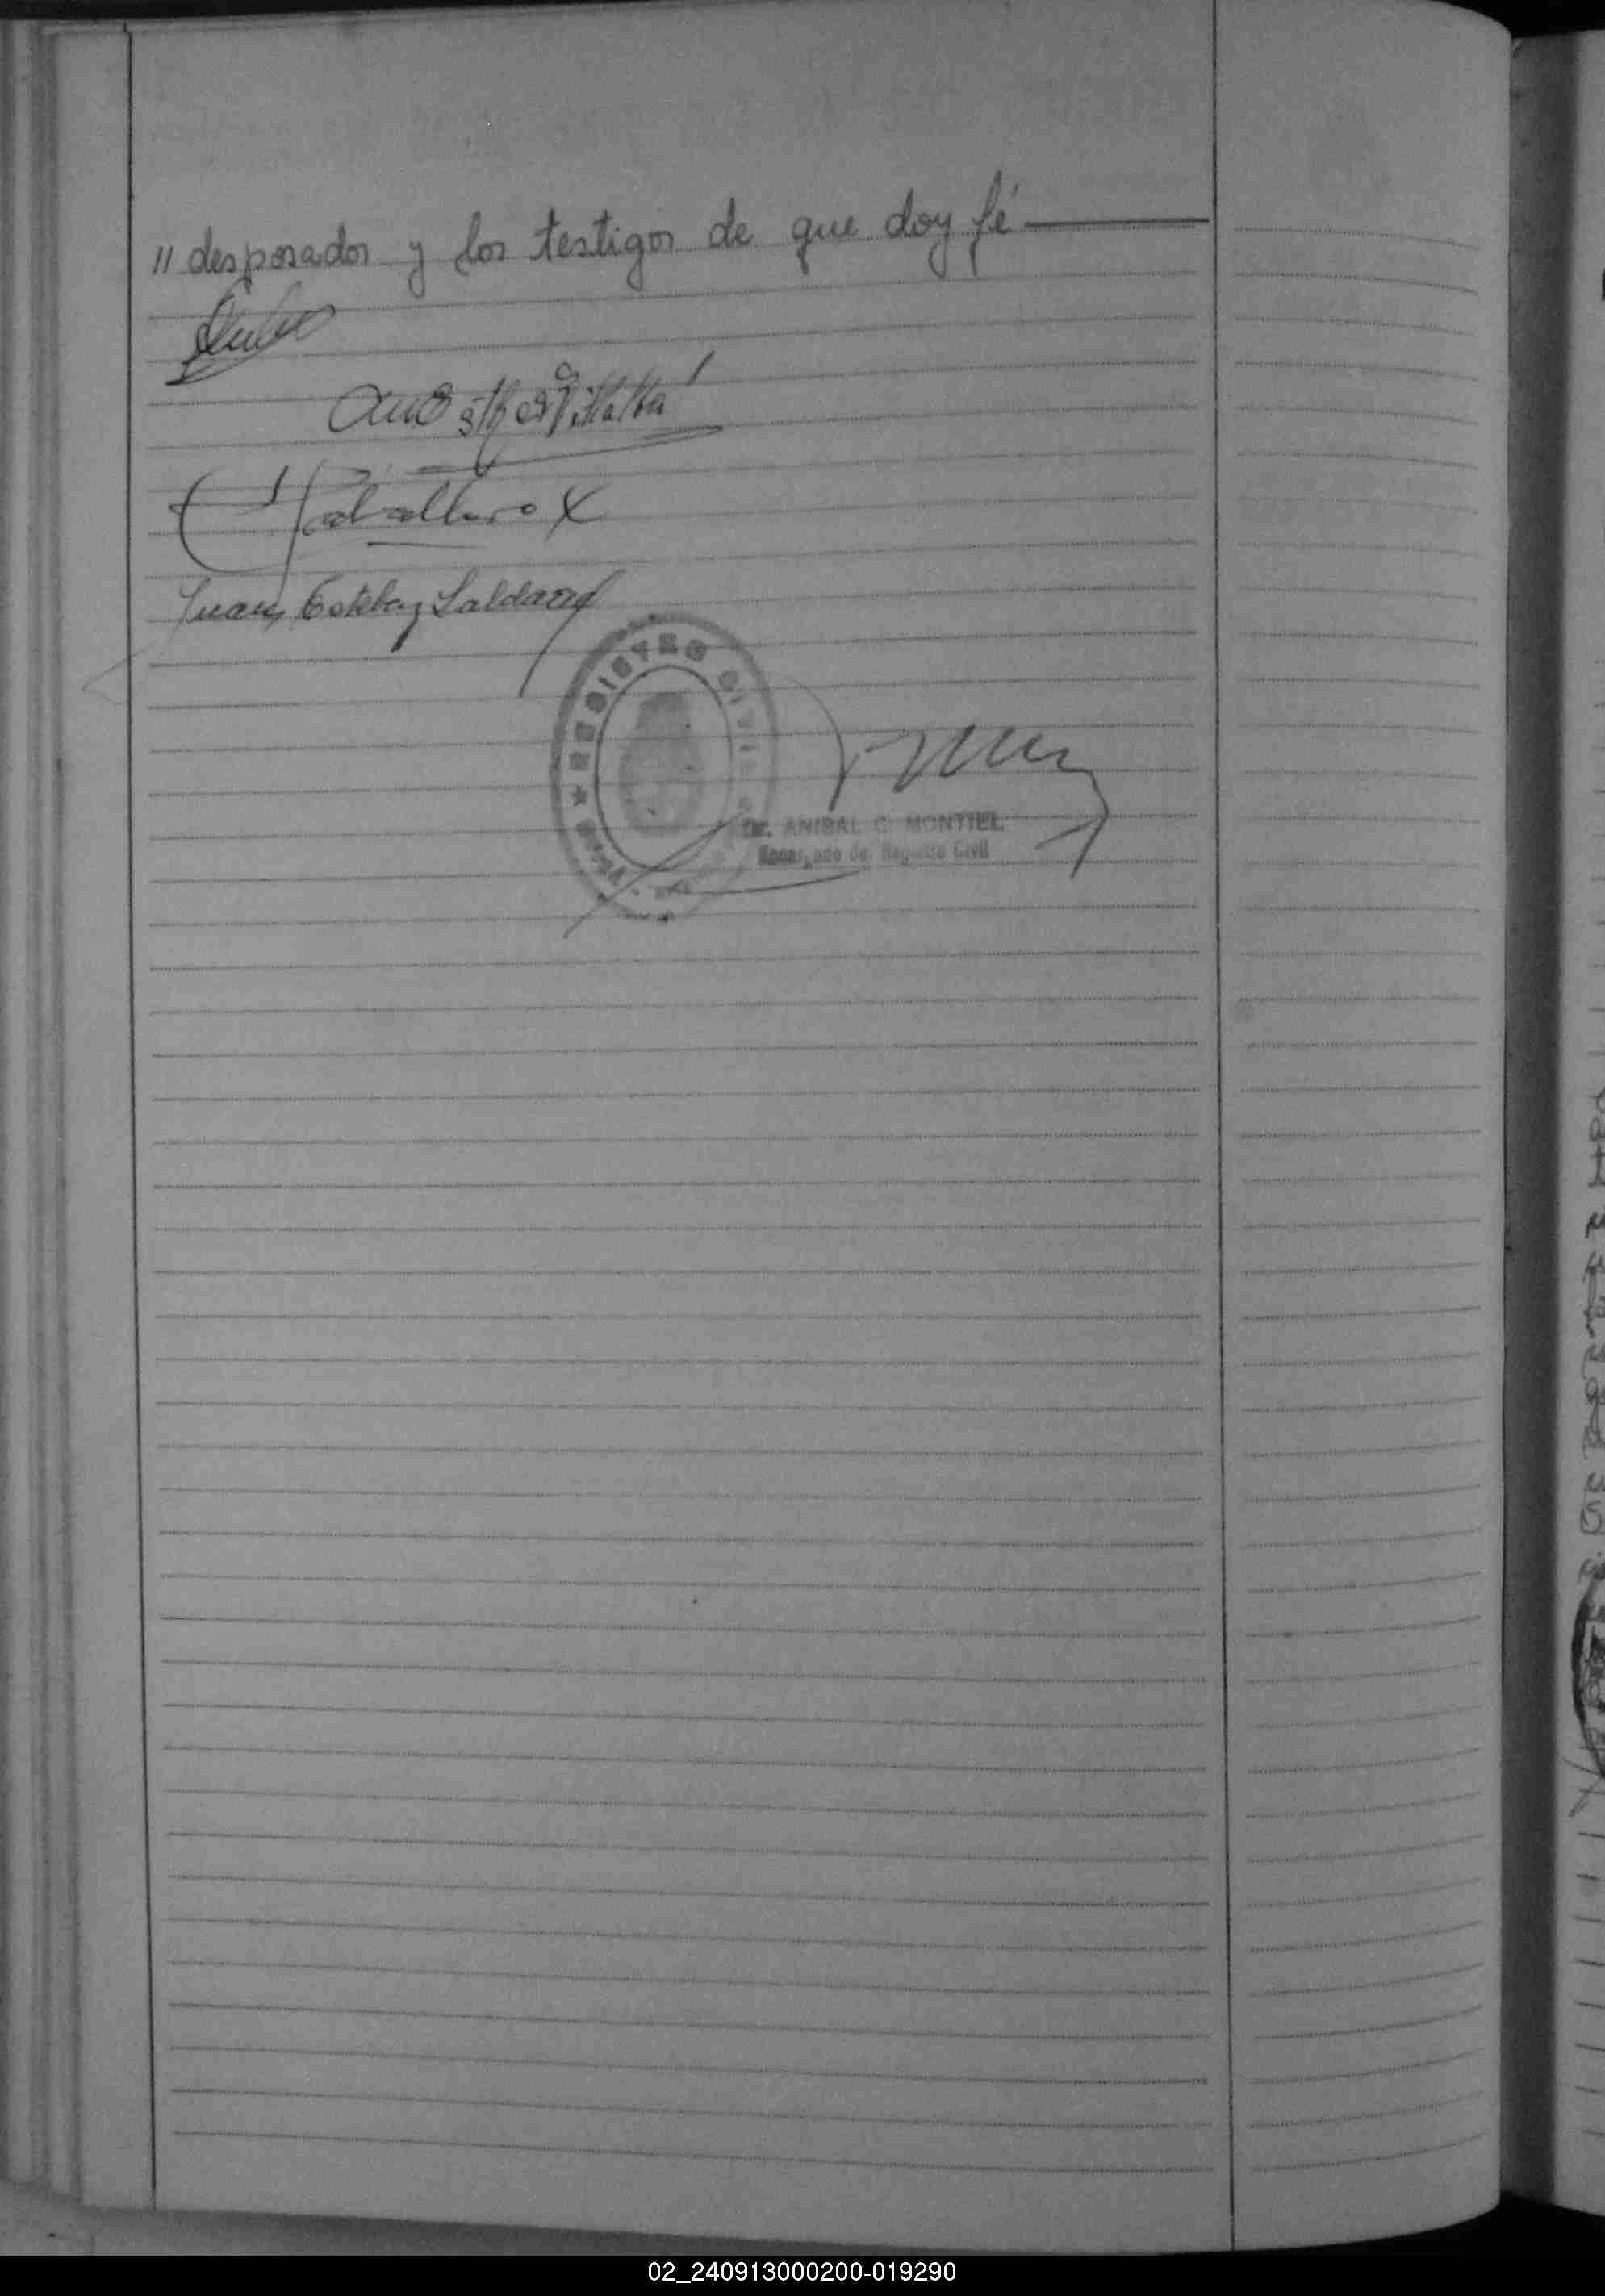 // desposados y los testigos de que doy fé
Villalba
Caballero
Juan Esteban Saldaña
★ REGISTRO CIVIL
Dr. ANIBAL C. MONTIEL
Encargado de Registro Civil
02_240913000200-019290